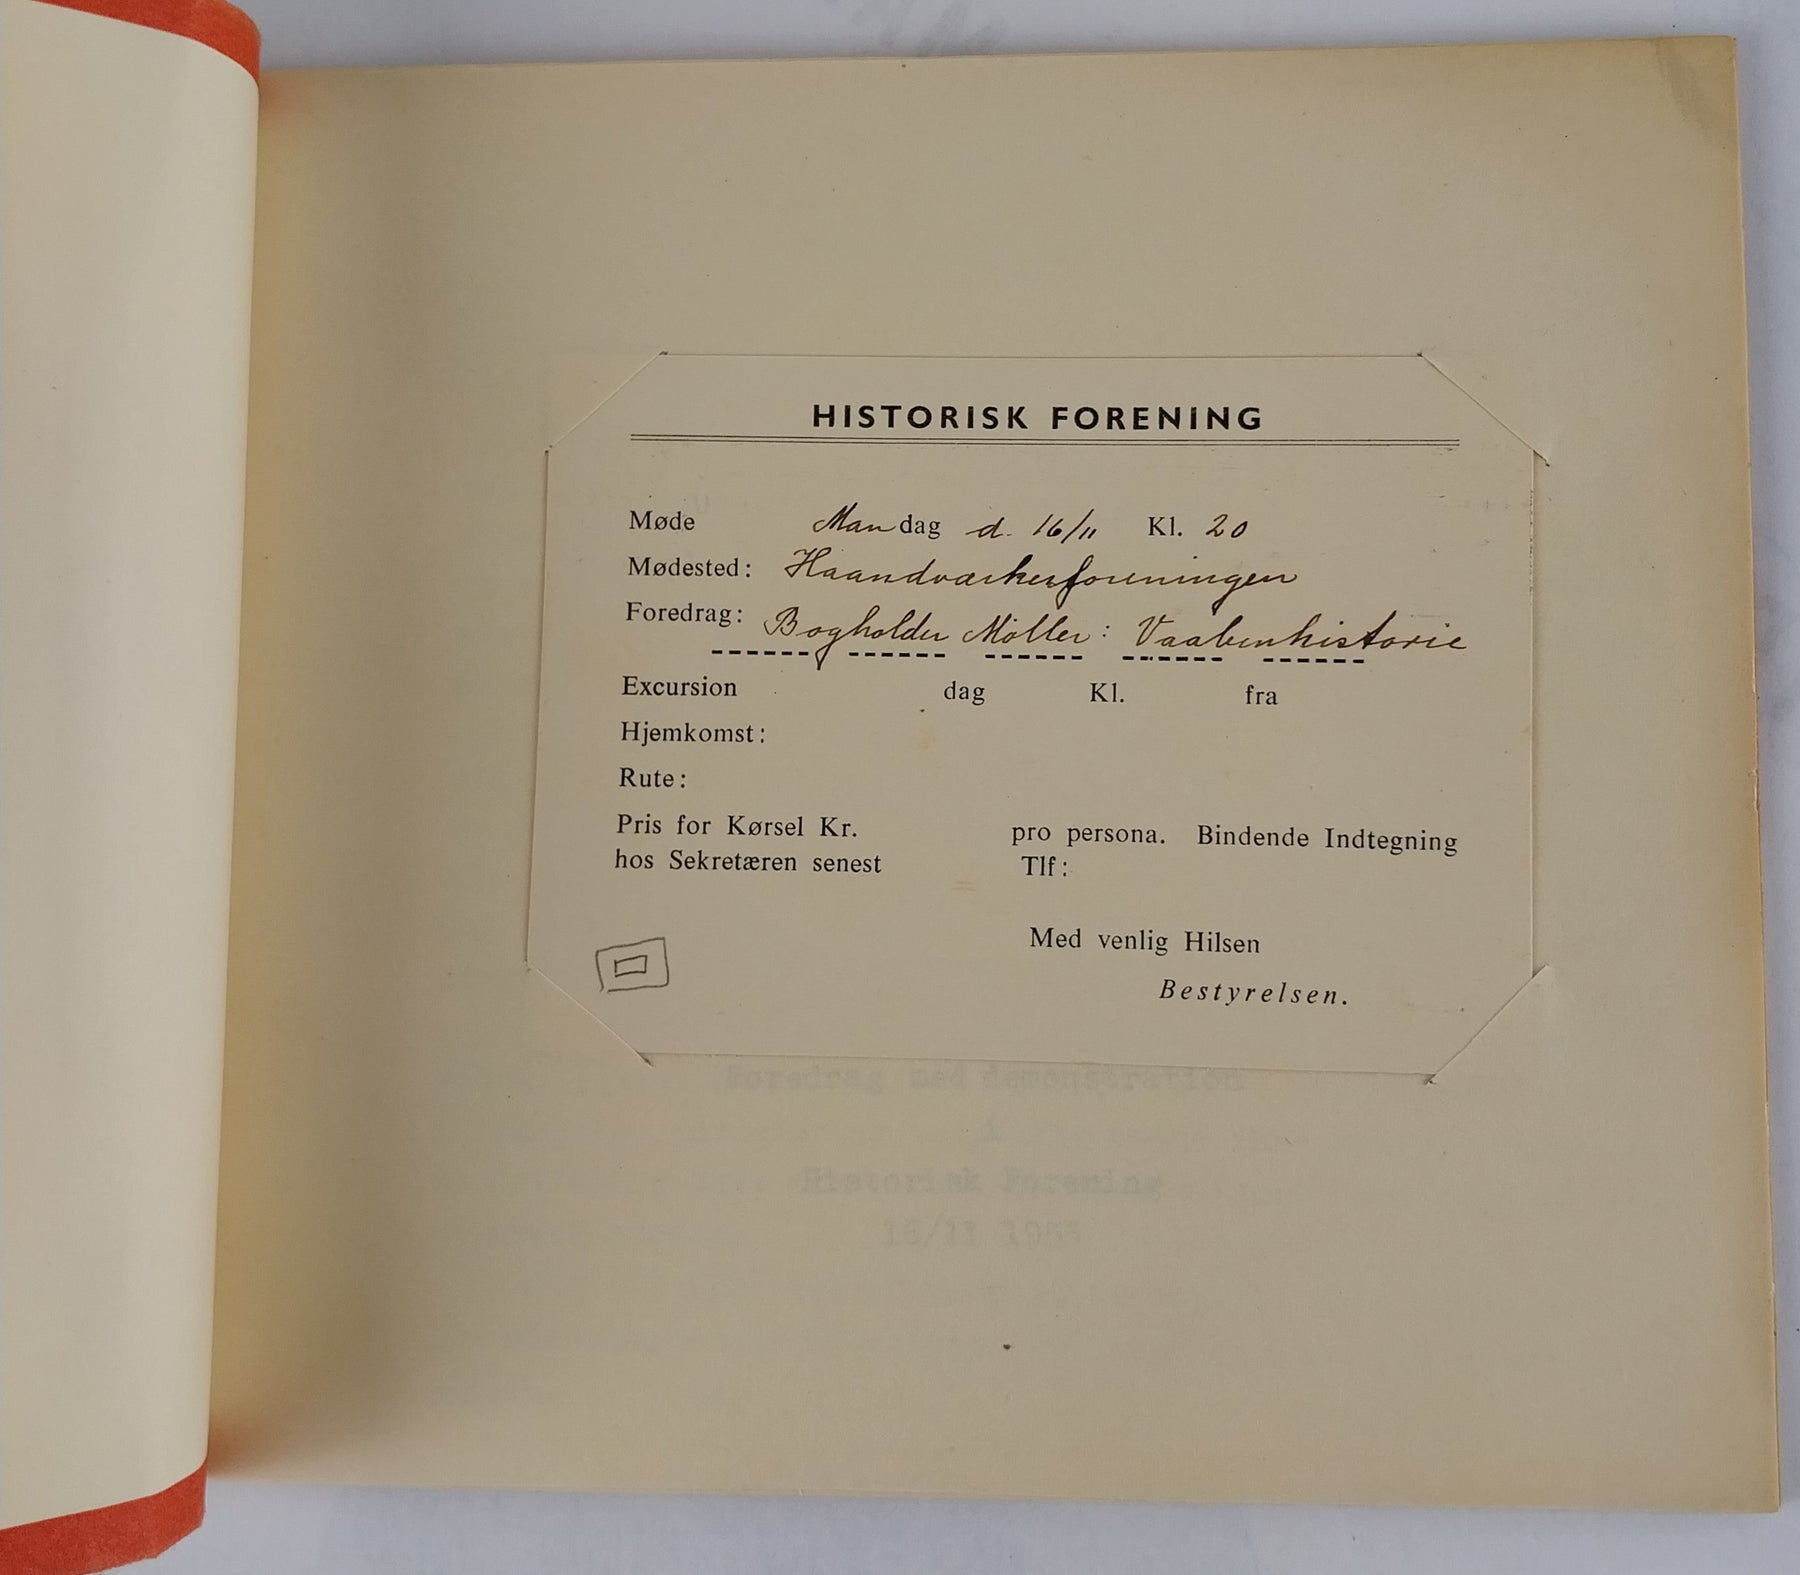 HISTORISK FORENING
Møde Mandag d. 16/11 Kl. 20
Mødested: Haandværkerforeningen
Foredrag: Bogholder Möller: Vaabenhistorie
Excursion dag Kl. fra
Hjemkomst:
Rute:
Pris for Kørsel Kr. pro persona. Bindende Indtegning
hos Sekretæren senest Tlf:
Med venlig Hilsen
Bestyrelsen.
Foredrag med demonstration
i
Historisk Forening
16/11 1953